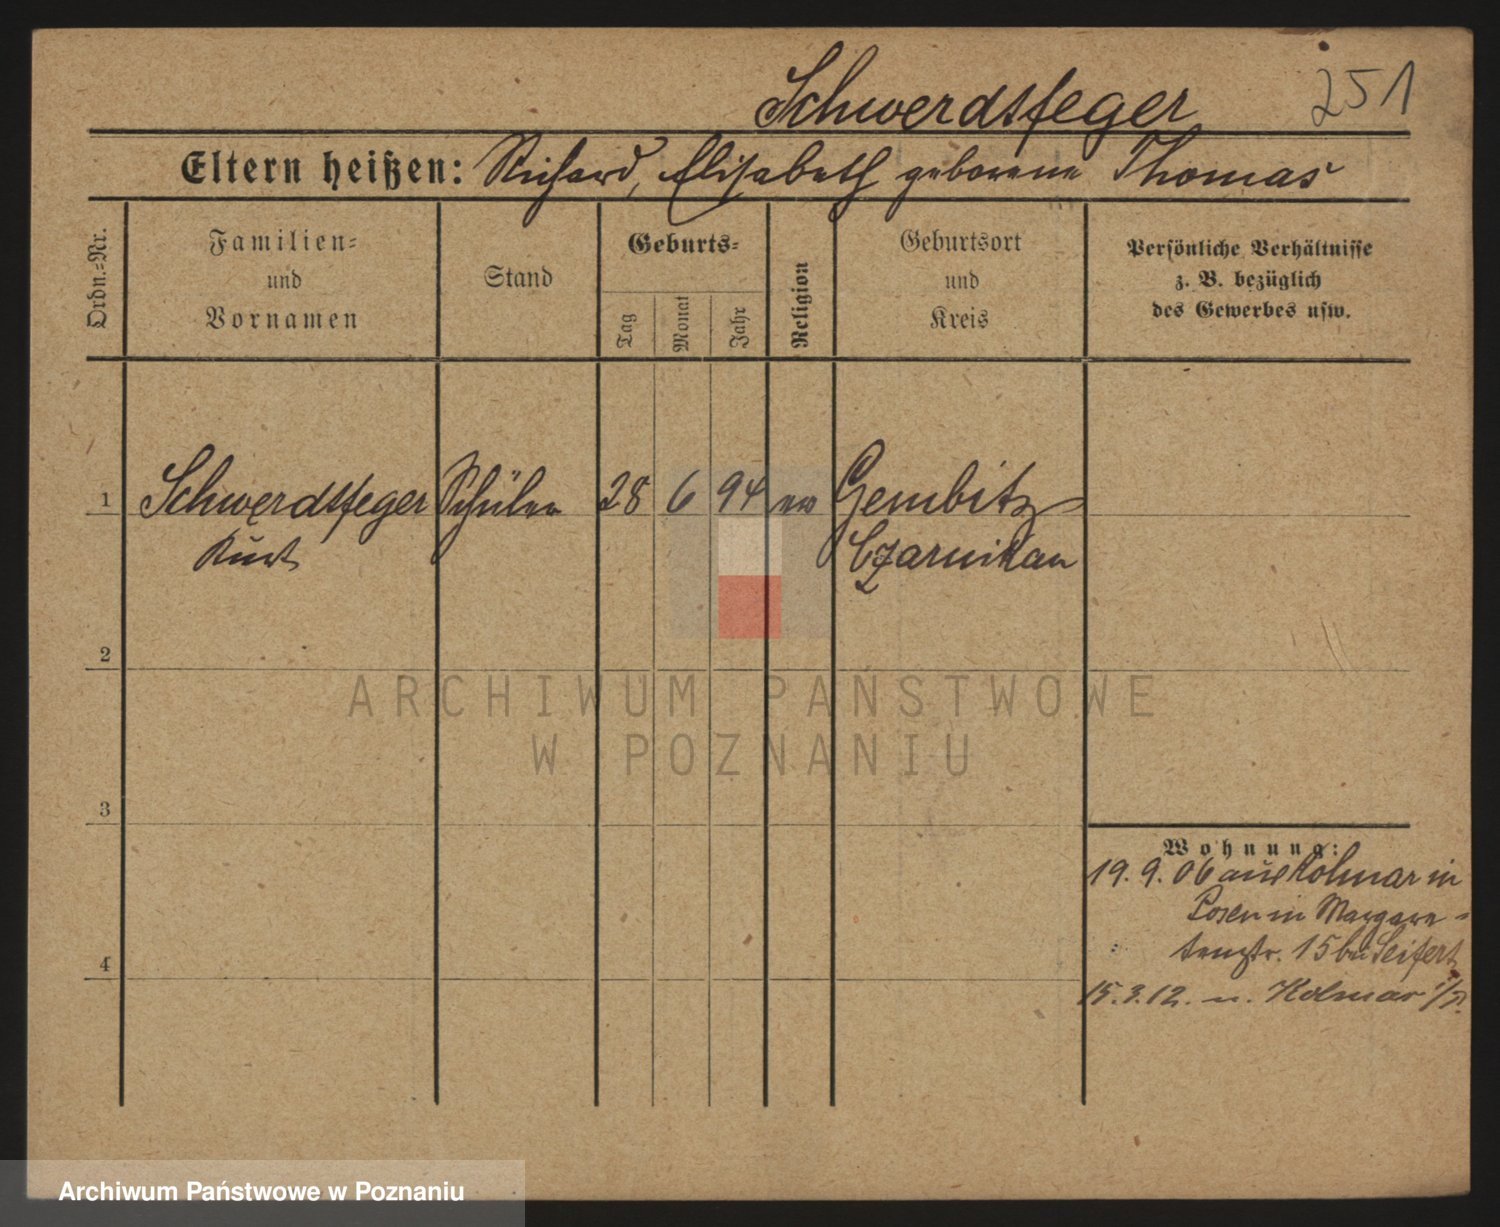 Schwerdtfeger 251
Eltern heißen: Richard, Elisabeth geborene Thomas
Ordn.=Nr.
Familien=
und
Vornamen
Stand
Geburts=
Tag
Monat
Jahr
Religion
Geburtsort
und
Kreis
Persönliche Verhältnisse
z. B. bezüglich
des Gewerbes usw.
1 Schwerdtfeger Schüler 28 6 94 ev Gembitz
Kurt Czarnikau
2
3
4
Wohnung:
19. 9. 06 aus Kolmar in
Posen in Margare-
tenstr. 15 bei Seifert
15. 3. 12. n. Kolmar i/P.
ARCHIWUM PAŃSTWOWE
W POZNANIU
Archiwum Państwowe w Poznaniu